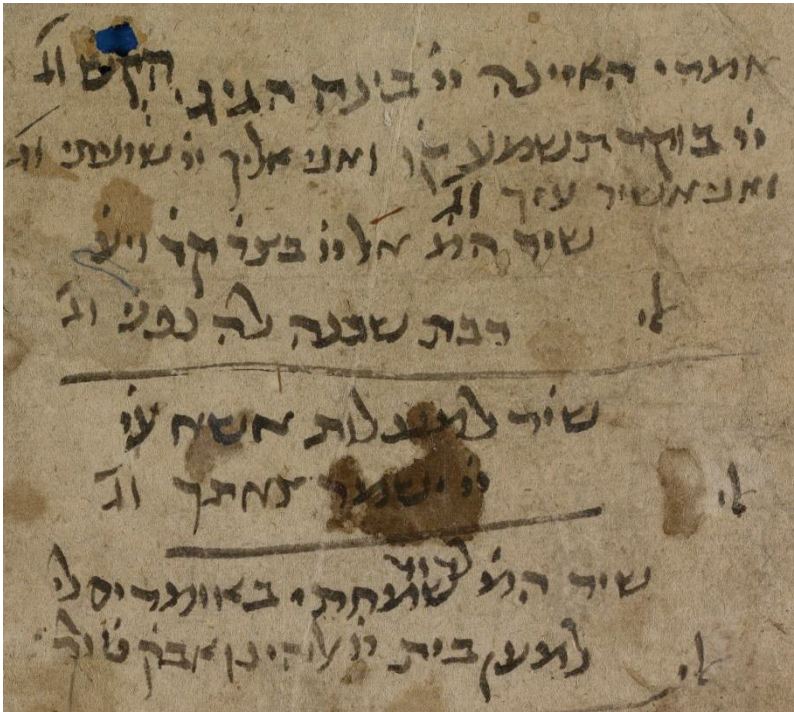 אמרי האזינה יי׳ בינה הגיגי הקש׳ וג׳
יי׳ בוקר תשמע קו׳ ואני אליך יי׳ שועתי וג׳
ואני אשיר עוזך וג׳
שיר המ׳ אל יי׳ בצר׳ קר׳ ויע׳
לי׳ רבת שכנה לה נפשי וג׳
שיר למעלות אשא עי׳
לי׳ יי׳ ישמר צאתך וג׳
שיר המ׳ לדוד שמחתי באומרים לי
לי׳ למען בית יי׳ אלהינו אבק׳ טוב לך